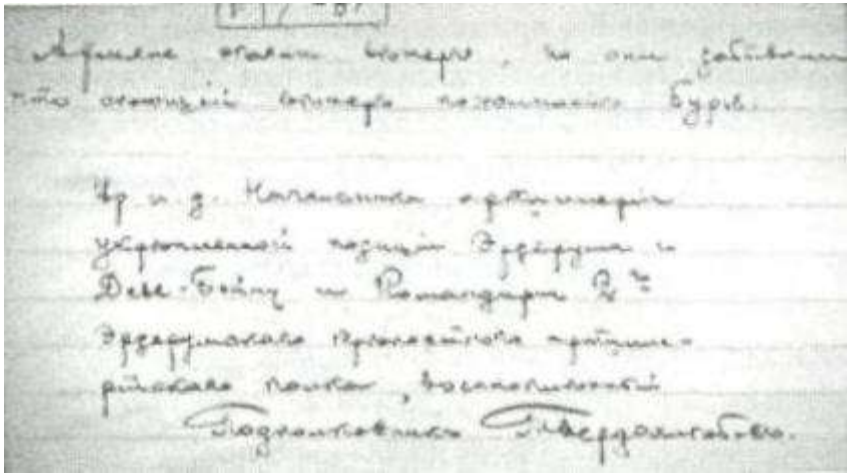 Армяне вѣтеръ, но они забывали
что вѣтеръ бурю.
Вр. и. д. Начальника артиллеріи
укрѣпленной позиціи Эрзерума и
Деве-Бойну и Командиръ 2го
Эрзерумскаго крѣпостного артилле-
рійскаго полка, военноплѣнный
Подполковникъ Твердохлѣбовъ.